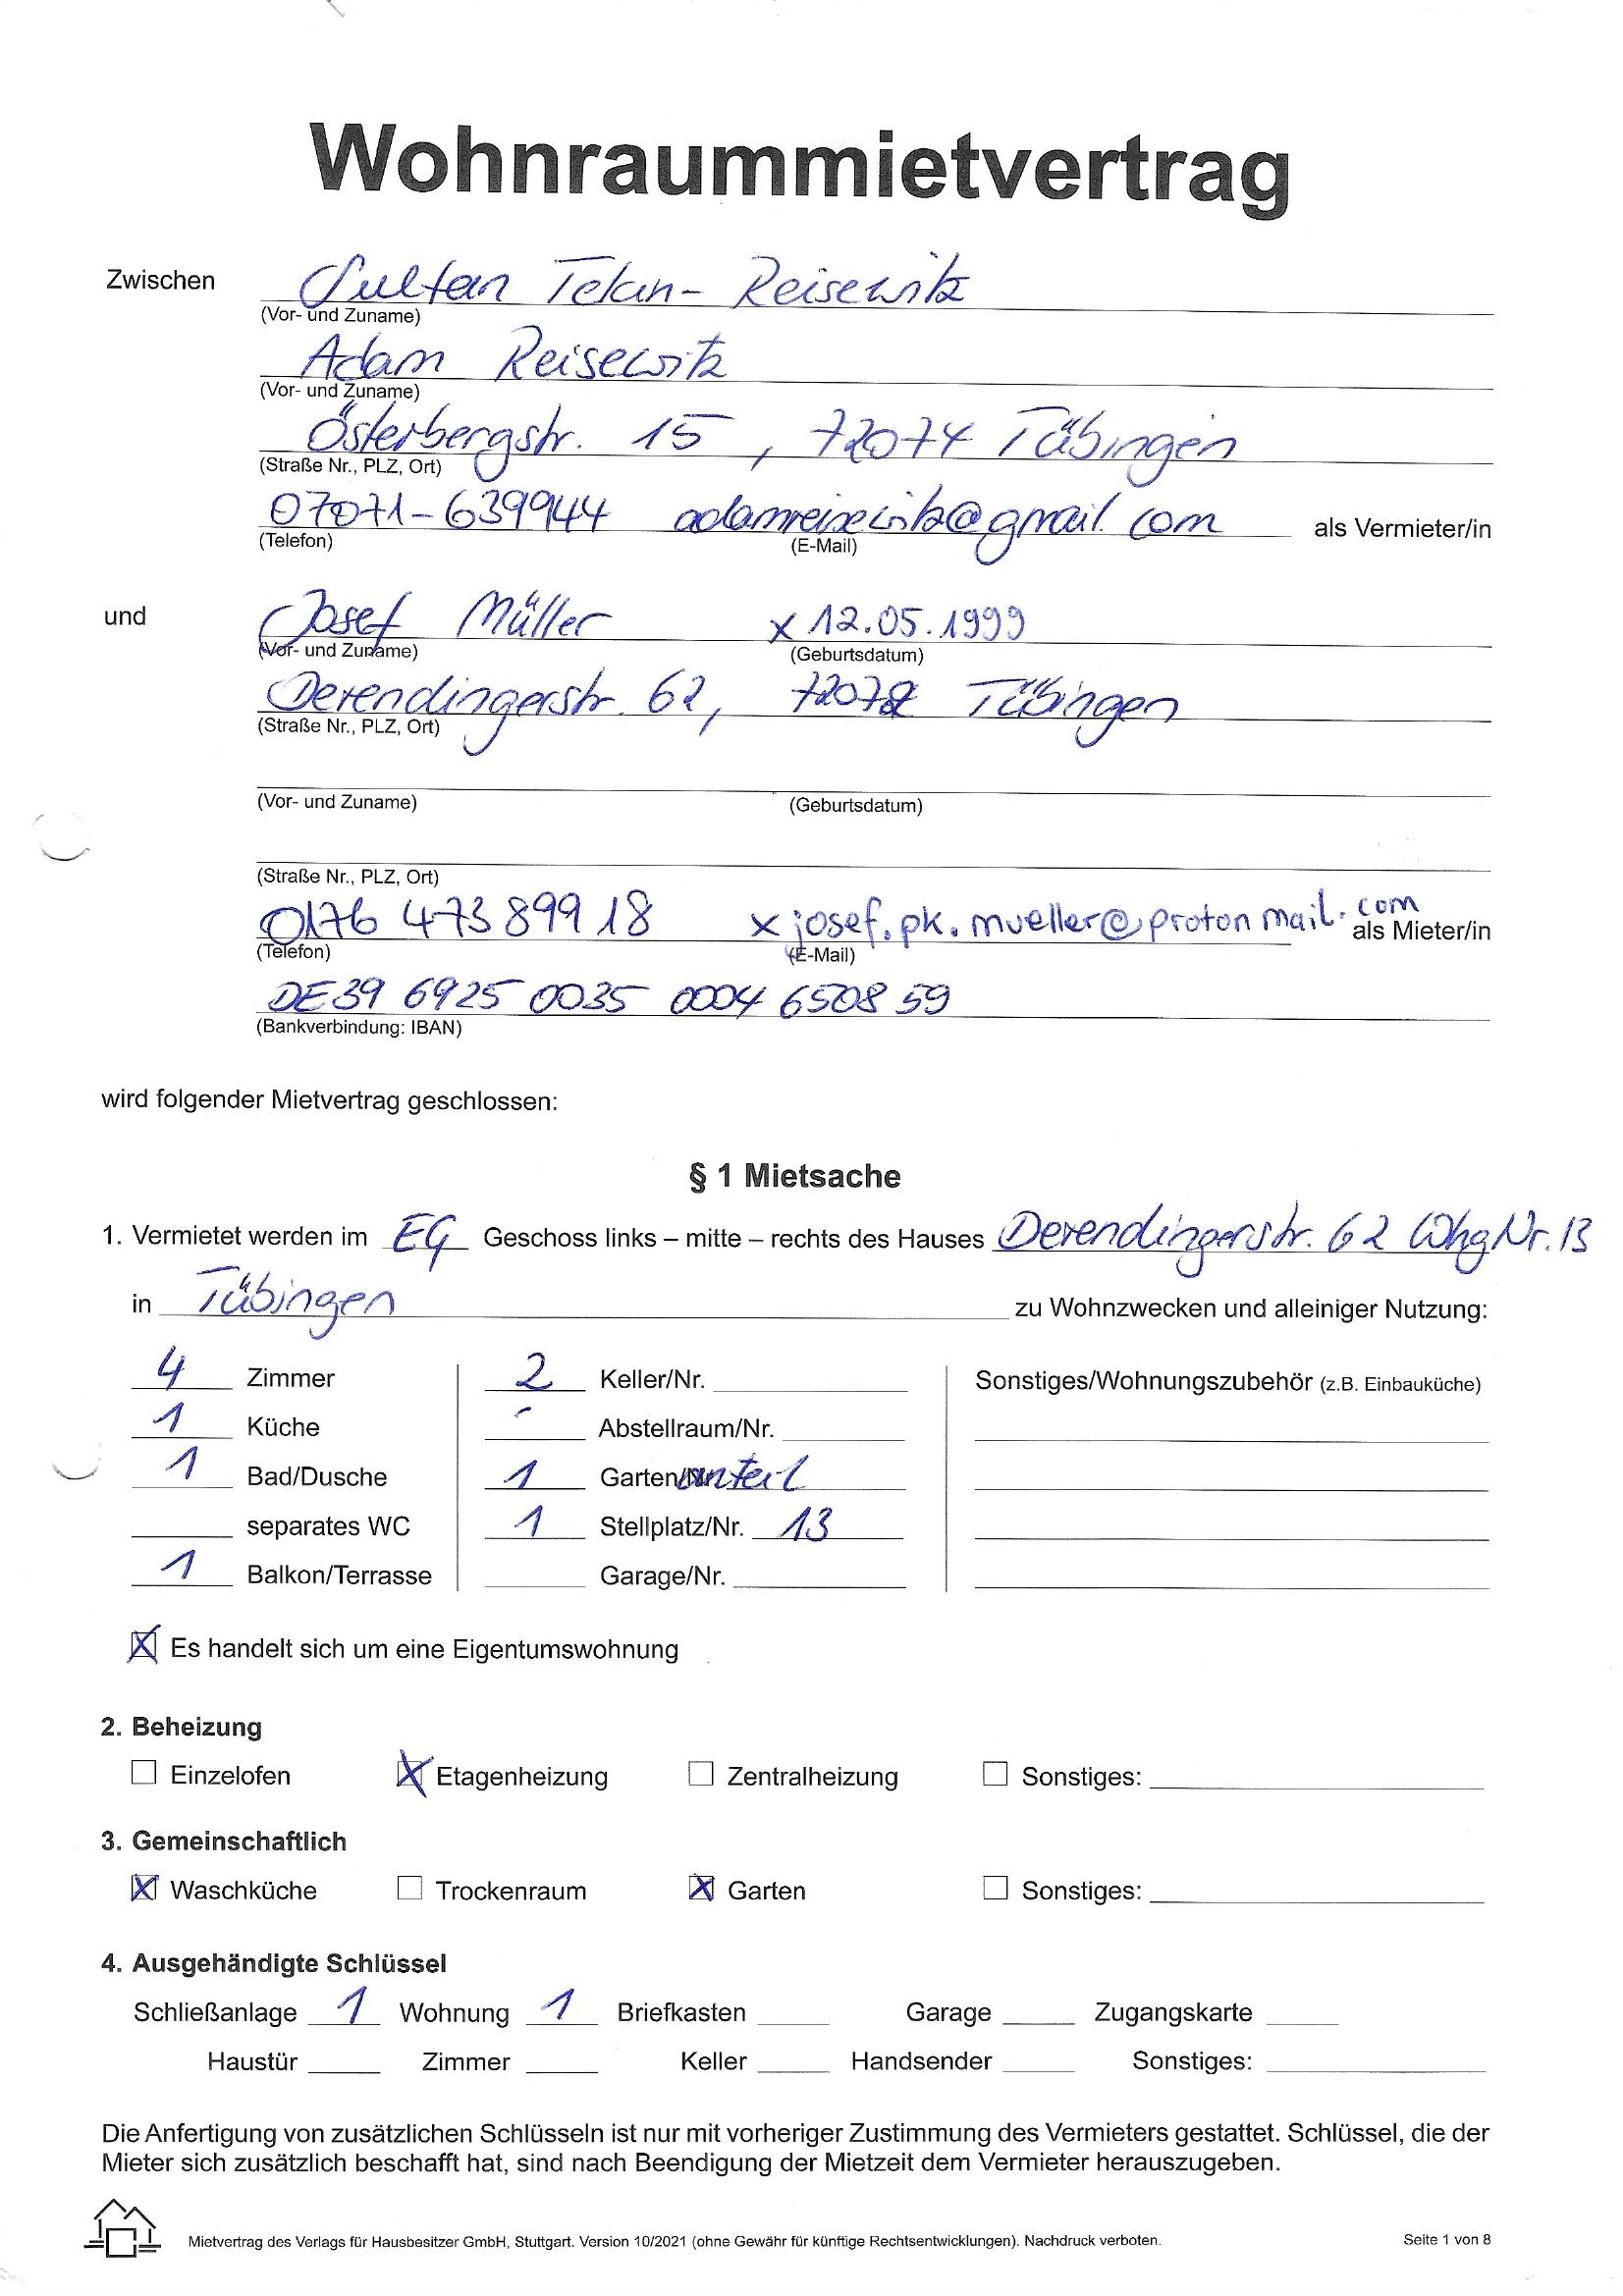 Wohnraummietvertrag
Zwischen Sultan Tekin-Reisewitz
(Vor- und Zuname)
Adam Reisewitz
(Vor- und Zuname)
Österbergstr. 15, 72074 Tübingen
(Straße Nr., PLZ, Ort)
07071-639944 adamreisewitz@gmail.com als Vermieter/in
(Telefon) (E-Mail)
und Josef Müller x 12.05.1999
(Vor- und Zuname) (Geburtsdatum)
Derendingerstr. 62, 72072 Tübingen
(Straße Nr., PLZ, Ort)
(Vor- und Zuname) (Geburtsdatum)
(Straße Nr., PLZ, Ort)
0176 473 899 18 x josef.pk.mueller@protonmail.com als Mieter/in
(Telefon) (E-Mail)
DE39 6925 0035 0004 6508 59
(Bankverbindung: IBAN)
wird folgender Mietvertrag geschlossen:
§ 1 Mietsache
1. Vermietet werden im EG Geschoss links – mitte – rechts des Hauses Derendingerstr. 62 Whg Nr. 13
in Tübingen zu Wohnzwecken und alleiniger Nutzung:
4 Zimmer 2 Keller/Nr. Sonstiges/Wohnungszubehör (z.B. Einbauküche)
1 Küche - Abstellraum/Nr.
1 Bad/Dusche 1 Garten/Nr. anteil
separates WC 1 Stellplatz/Nr. 13
1 Balkon/Terrasse Garage/Nr.
☒ Es handelt sich um eine Eigentumswohnung
2. Beheizung
☐ Einzelofen ☒ Etagenheizung ☐ Zentralheizung ☐ Sonstiges:
3. Gemeinschaftlich
☒ Waschküche ☐ Trockenraum ☒ Garten ☐ Sonstiges:
4. Ausgehändigte Schlüssel
Schließanlage 1 Wohnung 1 Briefkasten Garage Zugangskarte
Haustür Zimmer Keller Handsender Sonstiges:
Die Anfertigung von zusätzlichen Schlüsseln ist nur mit vorheriger Zustimmung des Vermieters gestattet. Schlüssel, die der
Mieter sich zusätzlich beschafft hat, sind nach Beendigung der Mietzeit dem Vermieter herauszugeben.
Mietvertrag des Verlags für Hausbesitzer GmbH, Stuttgart. Version 10/2021 (ohne Gewähr für künftige Rechtsentwicklungen). Nachdruck verboten. Seite 1 von 8